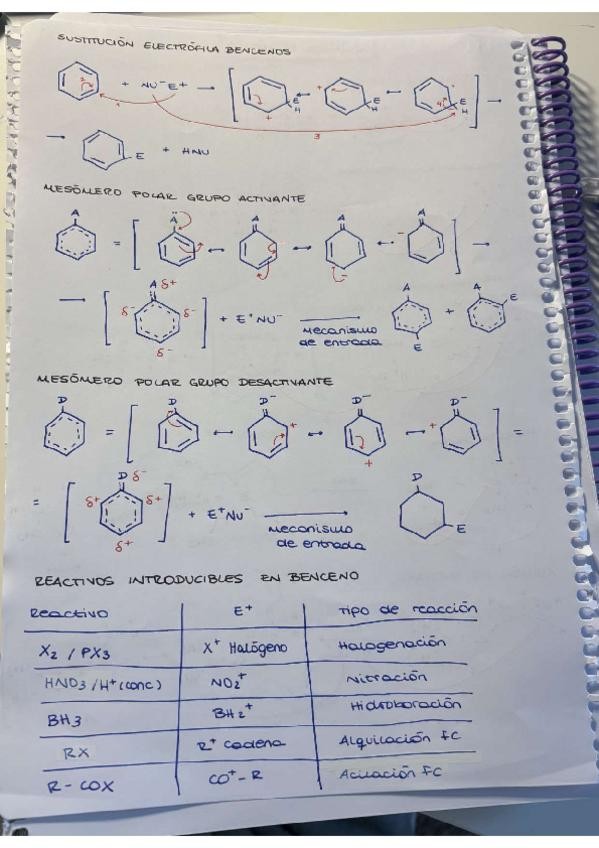 SUSTITUCIÓN ELECTRÓFILA BENCENOS
+ NU⁻E+ → [ + E H ↔ + E H ↔ + E H ] →
→ E + HNU
MESÓMERO POLAR GRUPO ACTIVANTE
A = [ A ↔ A ↔ A - ↔ - A ] →
→ [ A δ+ δ- δ- δ- ] + E⁺NU⁻ → A E + A E
mecanismo
de entrada
MESÓMERO POLAR GRUPO DESACTIVANTE
D = [ D ↔ D⁻ + ↔ D⁻ + ↔ + D⁻ ] =
= [ D δ- δ+ δ+ δ+ ] + E⁺NU⁻ → D E
mecanismo
de entrada
REACTIVOS INTRODUCIBLES EN BENCENO
Reactivo E+ Tipo de reacción
X2 / PX3 X⁺ Halógeno Halogenación
HNO3/H⁺(conc) NO2⁺ Nitración
BH3 BH2⁺ Hidroboración
RX R⁺ cadena Alquilación FC
R-COX CO⁺-R Acilación FC